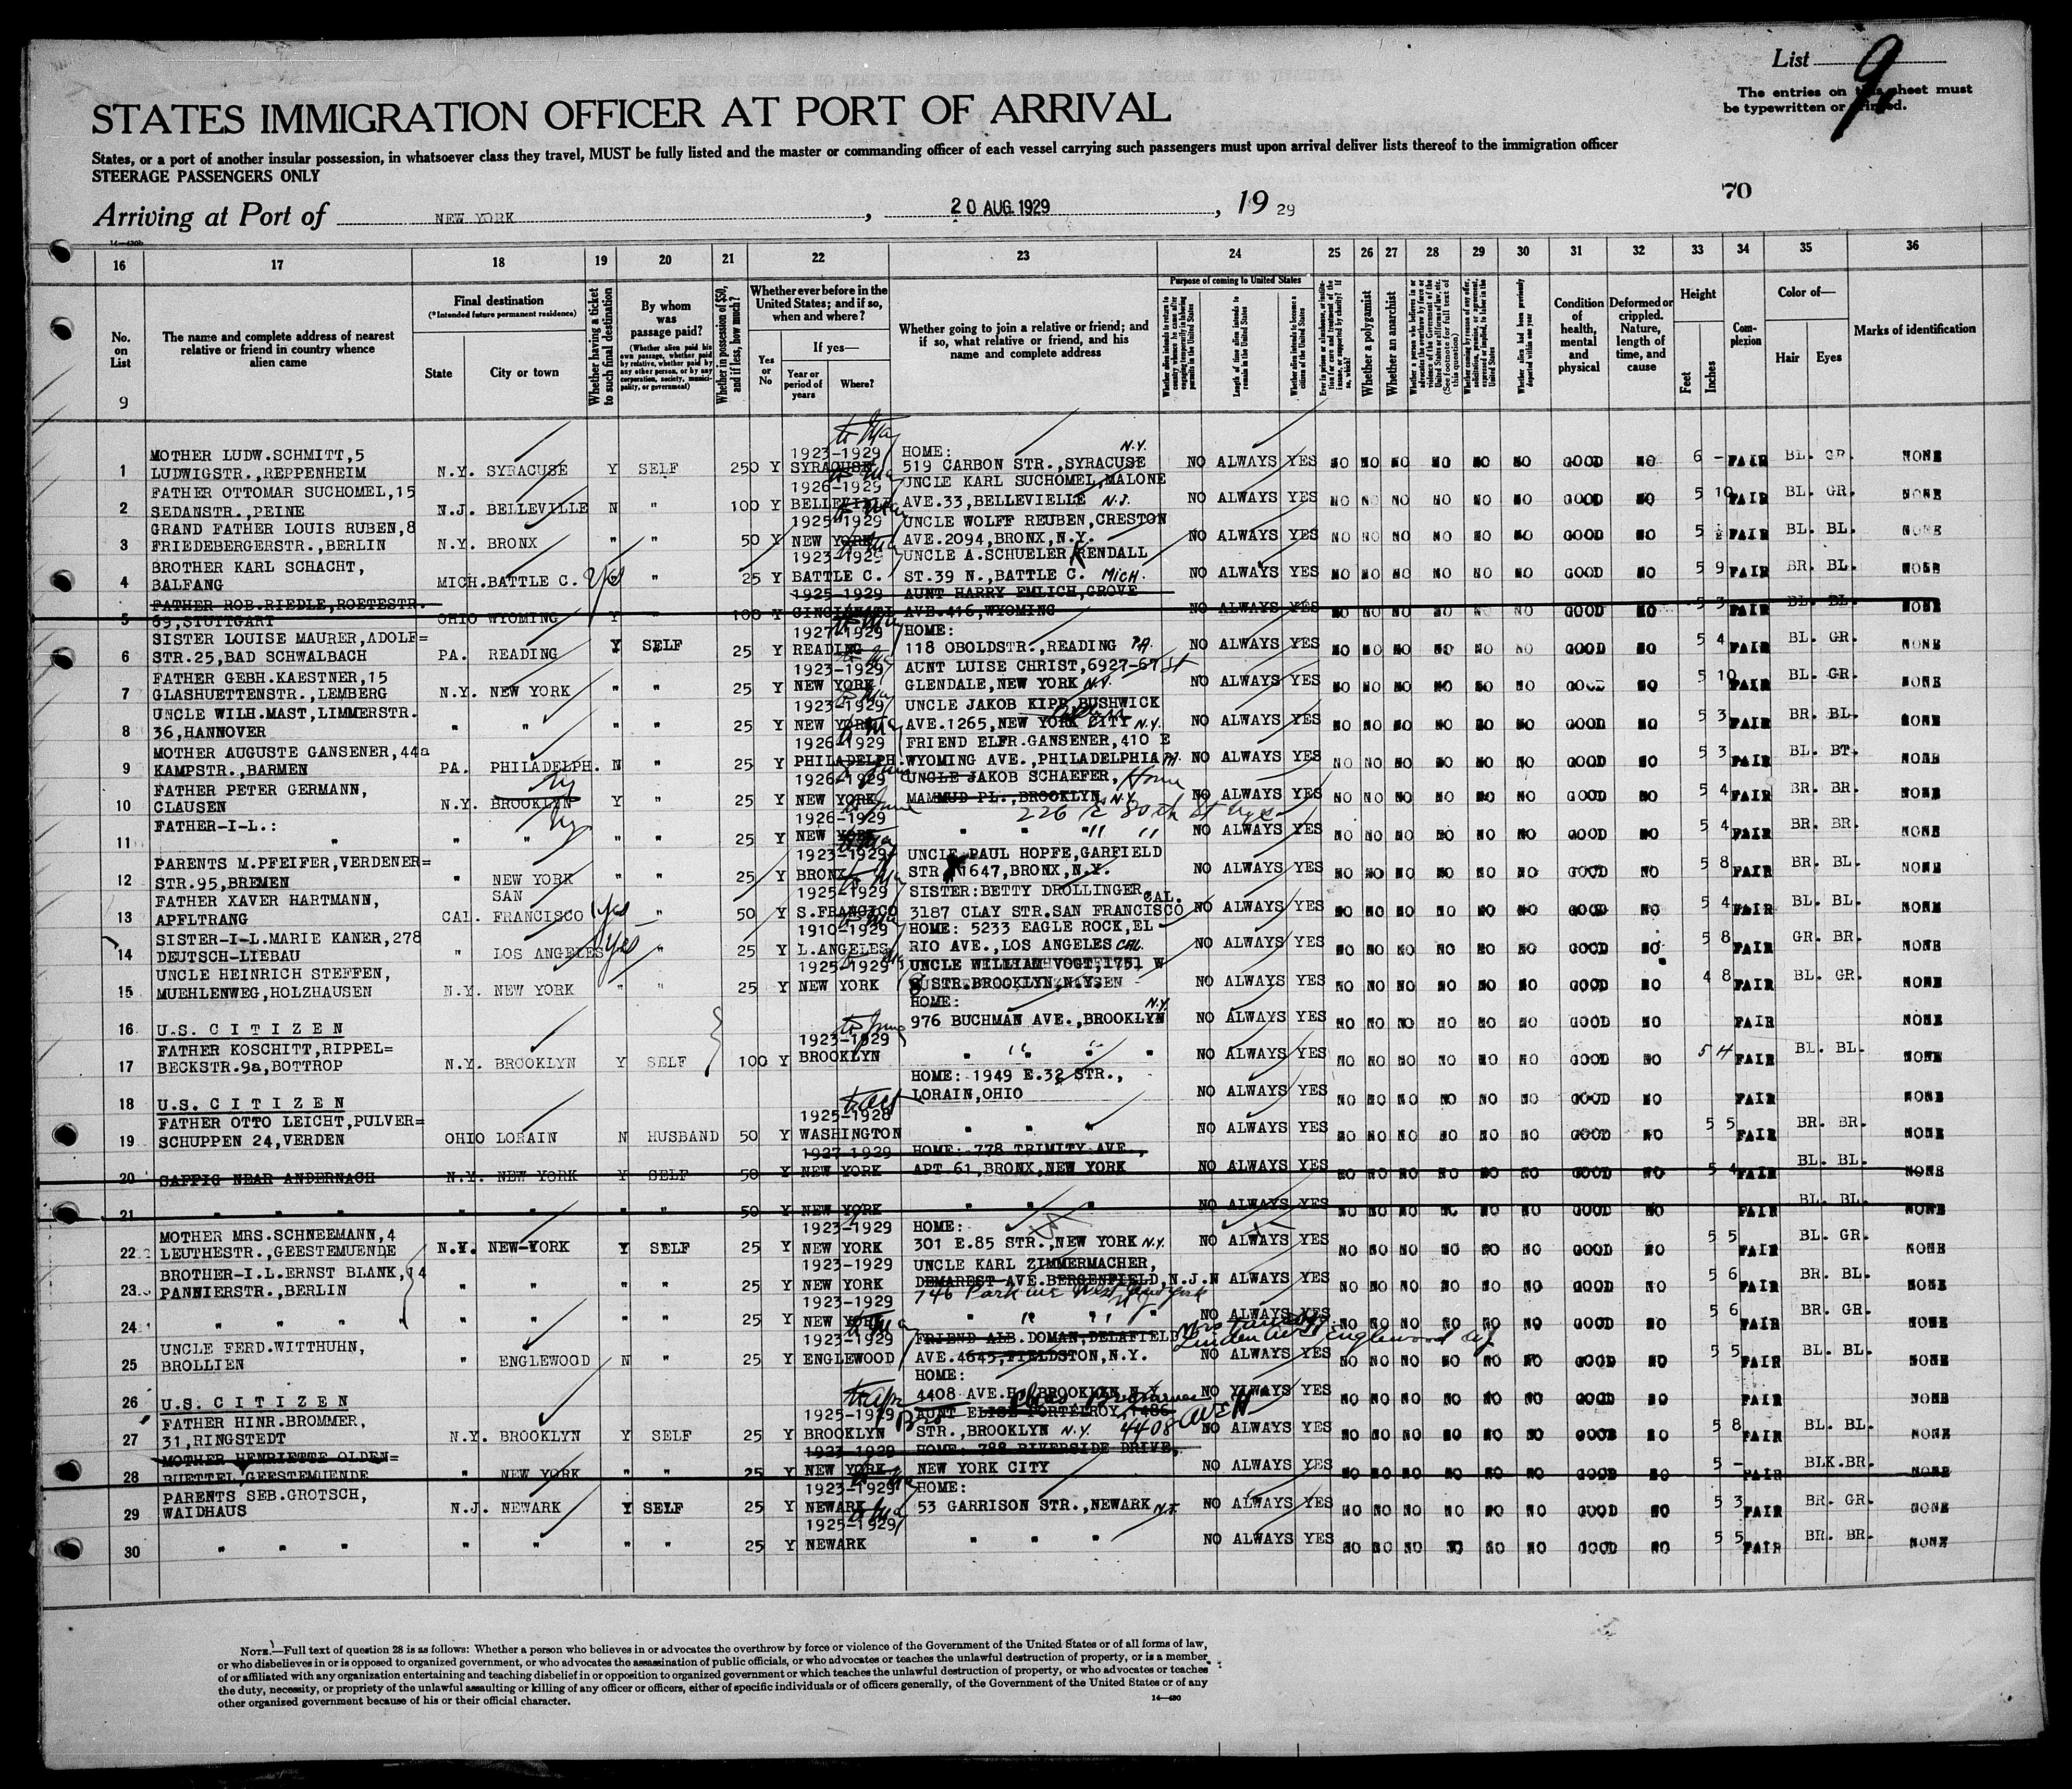 List 9
The entries on this sheet must
be typewritten or printed.
STATES IMMIGRATION OFFICER AT PORT OF ARRIVAL
States, or a port of another insular possession, in whatsoever class they travel, MUST be fully listed and the master or commanding officer of each vessel carrying such passengers must upon arrival deliver lists thereof to the immigration officer
STEERAGE PASSENGERS ONLY
70
Arriving at Port of NEW YORK , 20 AUG. 1929 , 19 29
16 17 18 19 20 21 22 23 24 25 26 27 28 29 30 31 32 33 34 35 36
No. on List
9
The name and complete address of nearest relative or friend in country whence alien came
Final destination
(*Intended future permanent residence)
State
City or town
Whether having a ticket to such final destination
By whom was passage paid?
(Whether alien paid his own passage, whether paid by relative, whether paid by any other person, or by any corporation, society, municipality, or government)
Whether in possession of $50, and if less, how much?
Whether ever before in the United States; and if so, when and where?
Yes or No
If yes—
Year or period of years
Where?
Whether going to join a relative or friend; and if so, what relative or friend, and his name and complete address
Purpose of coming to United States
Length of time alien intends to remain in the United States
Whether alien intends to become a citizen of the United States
Whether a polygamist
Whether an anarchist
Condition of health, mental and physical
Deformed or crippled. Nature, length of time, and cause
Height
Feet
Inches
Complexion
Color of—
Hair
Eyes
Marks of identification
MOTHER LUDW.SCHMITT,5 1923-1929 HOME: N.Y.
1 LUDWIGSTR.,REPPENHEIM N.Y. SYRACUSE Y SELF 250 Y SYRACUSE 519 CARBON STR.,SYRACUSE NO ALWAYS YES NO NO NO NO NO NO GOOD NO 6 - FAIR BL. GR. NONE
FATHER OTTOMAR SUCHOMEL,15 1926-1929 UNCLE KARL SUCHOMEL,MALONE
2 SEDANSTR.,PEINE N.J. BELLEVILLE N " 100 Y BELLEVILLE AVE.33,BELLEVIELLE N.J. NO ALWAYS YES NO NO NO NO NO NO GOOD NO 5 10 FAIR BL. GR. NONE
GRAND FATHER LOUIS RUBEN,8 1925-1929 UNCLE WOLFF REUBEN,CRESTON
3 FRIEDEBERGERSTR.,BERLIN N.Y. BRONX " " 50 Y NEW YORK AVE.2094,BRONX,N.Y. NO ALWAYS YES NO NO NO NO NO NO GOOD NO 5 FAIR BL. BL. NONE
BROTHER KARL SCHACHT, 1923-1929 UNCLE A.SCHUELER KENDALL
4 BALFANG MICH. BATTLE C. Yes " 25 Y BATTLE C. ST.39 N.,BATTLE C. MICH. NO ALWAYS YES NO NO NO NO NO NO GOOD NO 5 9 FAIR BR. BL. NONE
FATHER ROB.RIEDLE,ROETESTR. 1925-1929 AUNT HARRY EMLICH,GROVE
5 69,STUTTGART OHIO WYOMING Y " 100 Y CINCINNATI AVE.416,WYOMING NO ALWAYS YES NO NO NO NO NO NO GOOD NO 5 3 FAIR BL. BL. NONE
SISTER LOUISE MAURER,ADOLF= 1927-1929 HOME:
6 STR.25,BAD SCHWALBACH PA. READING Y SELF 25 Y READING 118 OBOLDSTR.,READING PA. NO ALWAYS YES NO NO NO NO NO NO GOOD NO 5 4 FAIR BL. GR. NONE
FATHER GEBH.KAESTNER,15 1923-1929 AUNT LUISE CHRIST,6927-67 St
7 GLASHUETTENSTR.,LEMBERG N.Y. NEW YORK " " 25 Y NEW YORK GLENDALE,NEW YORK N.Y. NO ALWAYS YES NO NO NO NO NO NO GOOD NO 5 10 FAIR BL. GR. NONE
UNCLE WILH.MAST,LIMMERSTR. 1923-1929 UNCLE JAKOB KIPP,BUSHWICK
8 36,HANNOVER " " " " 25 Y NEW YORK AVE.1265,NEW YORK CITY N.Y. NO ALWAYS YES NO NO NO NO NO NO GOOD NO 5 3 FAIR BR. BL. NONE
MOTHER AUGUSTE GANSENER,44a 1926-1929 FRIEND ELFR.GANSENER,410 E
9 KAMPSTR.,BARMEN PA. PHILADELPH. N " 25 Y PHILADELPH. WYOMING AVE.,PHILADELPHIA PA. NO ALWAYS YES NO NO NO NO NO NO GOOD NO 5 3 FAIR BL. BT. NONE
FATHER PETER GERMANN, NY 1926-1929 UNCLE JAKOB SCHAEFER, Home
10 CLAUSEN N.Y. BROOKLYN Y " 25 Y NEW YORK MAMMUD PL.,BROOKLYN,N.Y. NO ALWAYS YES NO NO NO NO NO NO GOOD NO 5 4 FAIR BR. BR. NONE
FATHER-I-L.: NY 1926-1929 226 E 80th St NYC
11 " " " " " 25 Y NEW YORK " " " NO ALWAYS YES NO NO NO NO NO NO GOOD NO 5 4 FAIR BR. BR. NONE
PARENTS M.PFEIFER,VERDENER= 1923-1929 UNCLE PAUL HOPFE,GARFIELD
12 STR.95,BREMEN " NEW YORK " " 25 Y BRONX STR 1647,BRONX,N.Y. NO ALWAYS YES NO NO NO NO NO NO GOOD NO 5 8 FAIR BR. BL. NONE
FATHER XAVER HARTMANN, SAN 1925-1929 SISTER:BETTY DROLLINGER CAL.
13 APFLTRANG CAL. FRANCISCO Yes " 50 Y S.FRANCICO 3187 CLAY STR.SAN FRANCISCO NO ALWAYS YES NO NO NO NO NO NO GOOD NO 5 4 FAIR BL. BL. NONE
SISTER-I-L.MARIE KANER,278 1910-1929 HOME: 5233 EAGLE ROCK,EL
14 DEUTSCH-LIEBAU " LOS ANGELES Yes " 25 Y L.ANGELES RIO AVE.,LOS ANGELES CAL. NO ALWAYS YES NO NO NO NO NO NO GOOD NO 5 8 FAIR GR. BR. NONE
UNCLE HEINRICH STEFFEN, 1925-1929 UNCLE WILLIAM VOGT,1751 W
15 MUEHLENWEG,HOLZHAUSEN N.Y. NEW YORK " " 25 Y NEW YORK 8 STR.BROOKLYN,N.Y. NO ALWAYS YES NO NO NO NO NO NO GOOD NO 4 8 FAIR BL. GR. NONE
HOME: N.Y.
16 U.S. C I T I Z E N 976 BUCHMAN AVE.,BROOKLYN NO ALWAYS YES NO NO NO NO NO NO GOOD NO FAIR NONE
FATHER KOSCHITT,RIPPEL= to June 1923-1929
17 BECKSTR.9a,BOTTROP N.Y. BROOKLYN Y SELF 100 Y BROOKLYN " " " " NO ALWAYS YES NO NO NO NO NO NO GOOD NO 5 4 FAIR BL. BL. NONE
HOME: 1949 E.32 STR.,
18 U.S. C I T I Z E N LORAIN,OHIO NO ALWAYS YES NO NO NO NO NO NO GOOD NO FAIR NONE
FATHER OTTO LEICHT,PULVER= to Oct 1925-1928
19 SCHUPPEN 24,VERDEN OHIO LORAIN N HUSBAND 50 Y WASHINGTON " " " NO ALWAYS YES NO NO NO NO NO NO GOOD NO 5 5 FAIR BR. BR. NONE
1927-1929 HOME: 778 TRIMITY AVE.,
20 SAFFIG NEAR ANDERNACH N.Y. NEW YORK Y SELF 50 Y NEW YORK APT 61,BRONX,NEW YORK NO ALWAYS YES NO NO NO NO NO NO GOOD NO 5 4 FAIR BL. BL. NONE
21 " " " " " " " 50 Y NEW YORK " " " NO ALWAYS YES NO NO NO NO NO NO GOOD NO FAIR BL. BL. NONE
MOTHER MRS.SCHNEEMANN,4 1923-1929 HOME:
22 LEUTHESTR.,GEESTEMUENDE N.Y. NEW-YORK Y SELF 25 Y NEW YORK 301 E.85 STR.,NEW YORK N.Y. NO ALWAYS YES NO NO NO NO NO NO GOOD NO 5 5 FAIR BL. GR. NONE
BROTHER-I.L.ERNST BLANK,14 1923-1929 UNCLE KARL ZIMMERMACHER,
23 PANNIERSTR.,BERLIN " " " " 25 Y NEW YORK DEMAREST AVE.BERGENFIELD,N.J. N ALWAYS YES NO NO NO NO NO NO GOOD NO 5 6 FAIR BR. BL. NONE
1923-1929 746 Park ave West New York NJ
24 " " " " " " " 25 Y NEW YORK " " " NO ALWAYS YES NO NO NO NO NO NO GOOD NO 5 6 FAIR BR. GR. NONE
UNCLE FERD.WITTHUHN, 1923-1929 FRIEND ALB.DOMAN,DELAFIELD Linden Ave Englewood NJ
25 BROLLIEN " ENGLEWOOD N " 25 Y ENGLEWOOD AVE.4645,FIELDSTON,N.Y. NO ALWAYS YES NO NO NO NO NO NO GOOD NO 5 5 FAIR BL. BL. NONE
HOME:
26 U.S. C I T I Z E N 4408 AVE.H.,BROOKLYN,N.Y. NO YLWAYS YES NO NO NO NO NO NO GOOD NO FAIR NONE
FATHER HINR.BROMMER, to Apr 1925-1929 Bro AUNT ELISE PORTELROY,1486
27 31,RINGSTEDT N.Y. BROOKLYN Y SELF 25 Y BROOKLYN STR.,BROOKLYN N.Y. 4408 Ave H NO ALWAYS YES NO NO NO NO NO NO GOOD NO 5 8 FAIR BL. BL. NONE
MOTHER HENRIETTE OLDEN= 1923-1929 HOME: 788 RIVERSIDE DRIVE,
28 BUETTEL,GEESTEMUENDE " NEW YORK " " 25 Y NEW YORK NEW YORK CITY NO ALWAYS YES NO NO NO NO NO NO GOOD NO 5 - FAIR BLK.BR. NONE
PARENTS SEB.GROTSCH, 1923-1929 HOME:
29 WAIDHAUS N.J. NEWARK Y SELF 25 Y NEWARK 53 GARRISON STR.,NEWARK N.J. NO ALWAYS YES NO NO NO NO NO NO GOOD NO 5 3 FAIR BR. GR. NONE
1925-1929
30 " " " " " " " 25 Y NEWARK " " " NO ALWAYS YES NO NO NO NO NO NO GOOD NO 5 5 FAIR BR. BR. NONE
NOTE.—Full text of question 28 is as follows: Whether a person who believes in or advocates the overthrow by force or violence of the Government of the United States or of all forms of law,
or who disbelieves in or is opposed to organized government, or who advocates the assassination of public officials, or who advocates or teaches the unlawful destruction of property, or is a member
of or affiliated with any organization entertaining and teaching disbelief in or opposition to organized government or which teaches the unlawful destruction of property, or who advocates or teaches
the duty, necessity, or propriety of the unlawful assaulting or killing of any officer or officers, either of specific individuals or of officers generally, of the Government of the United States or of any
other organized government because of his or their official character.
14—430